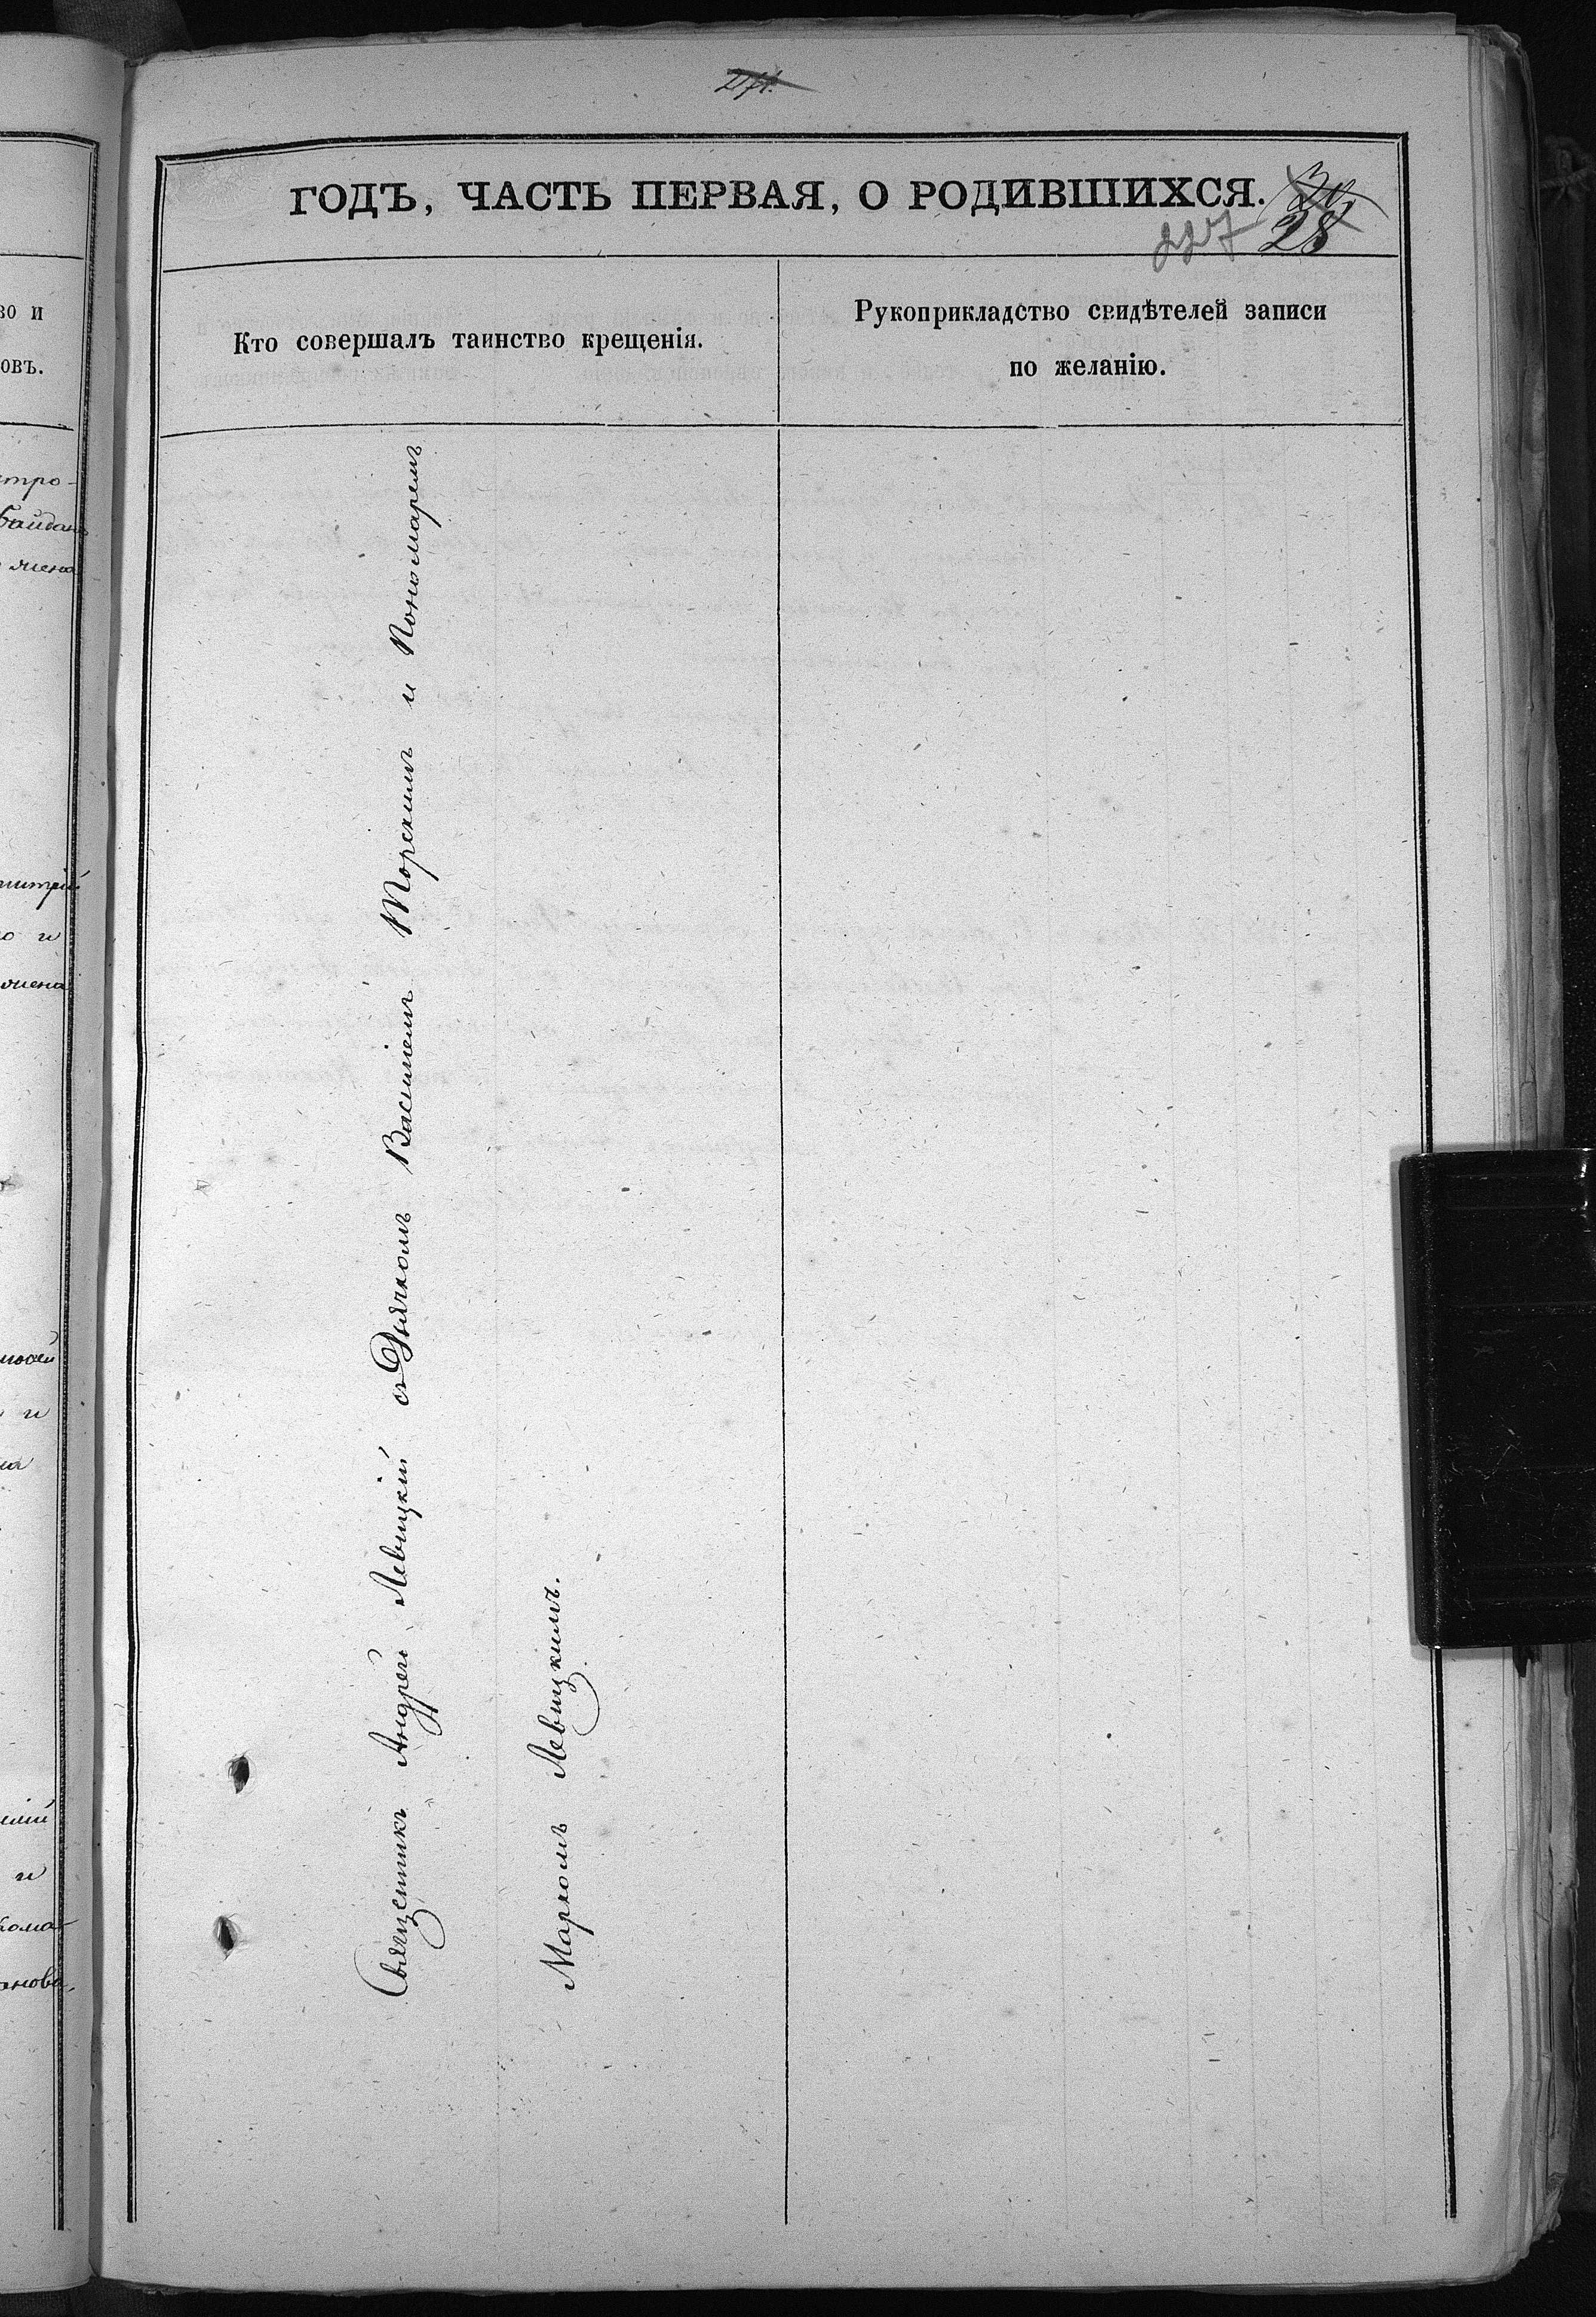 ГОДЪ, ЧАСТЬ ПЕРВАЯ, О РОДИВШИХСЯ.
30
227 28
Кто совершалъ таинство крещенія.
Рукоприкладство свидѣтелей записи
по желанію.
Священникъ Андрей Левицкій съ Дьячкомъ Василіемъ Торскимъ и Пономаремъ
Маркомъ Левицкимъ.
во и
овъ.
стро-
Байдан
жена
митрій
о и
жена
и
и